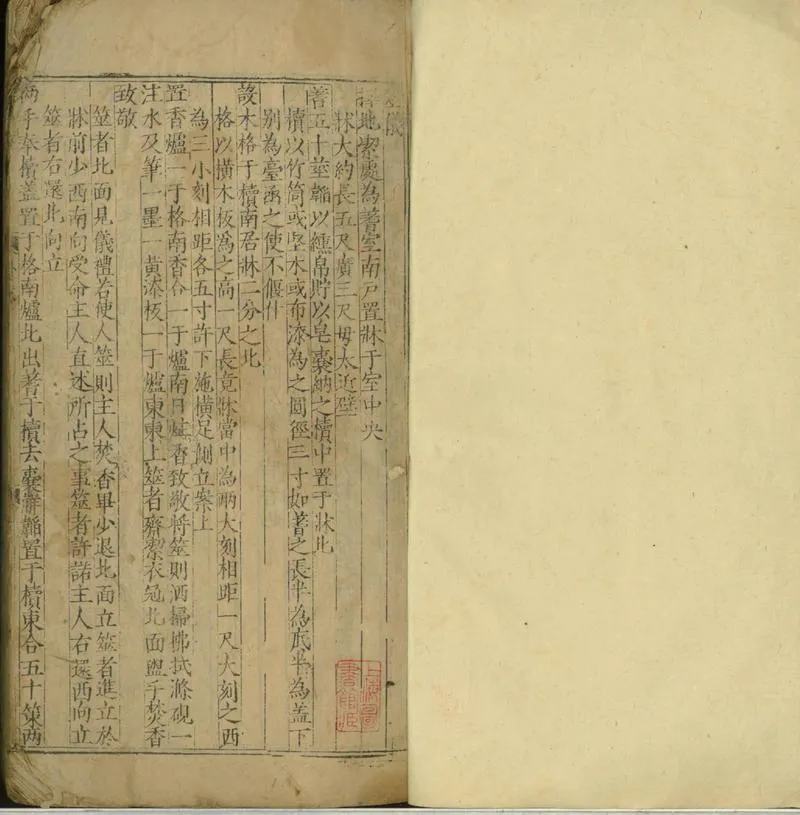 儀
地潔處為蓍室南戶置牀于室中央
牀大約長五尺廣三尺毋太近壁
蓍五十莖韜以纁帛貯以皂囊納之櫝中置于牀北
櫝以竹筒或堅木或布漆為之圓徑三寸如蓍之長半為底半為蓋下
別為臺函之使不偃仆
設木格于櫝南居牀二分之北
格以橫木板為之高一尺長竟牀當中為兩大刻相距一尺大刻之西
為三小刻相距各五寸許下施橫足側立案上
置香爐一于格南香合一于爐南日炷香致敬將筮則洒掃拂拭滌硯一
注水及筆一墨一黃漆板一于爐東東上筮者齊潔衣冠北面盥手焚香
致敬
筮者北面見儀禮若使人筮則主人焚香畢少退北面立筮者進立於
牀前少西南向受命主人直述所占之事筮者許諾主人右還西向立
筮者右還北向立
兩手奉櫝蓋置于格南爐北出蓍于櫝去囊解韜置于櫝東合五十策兩
上海圖
書館藏